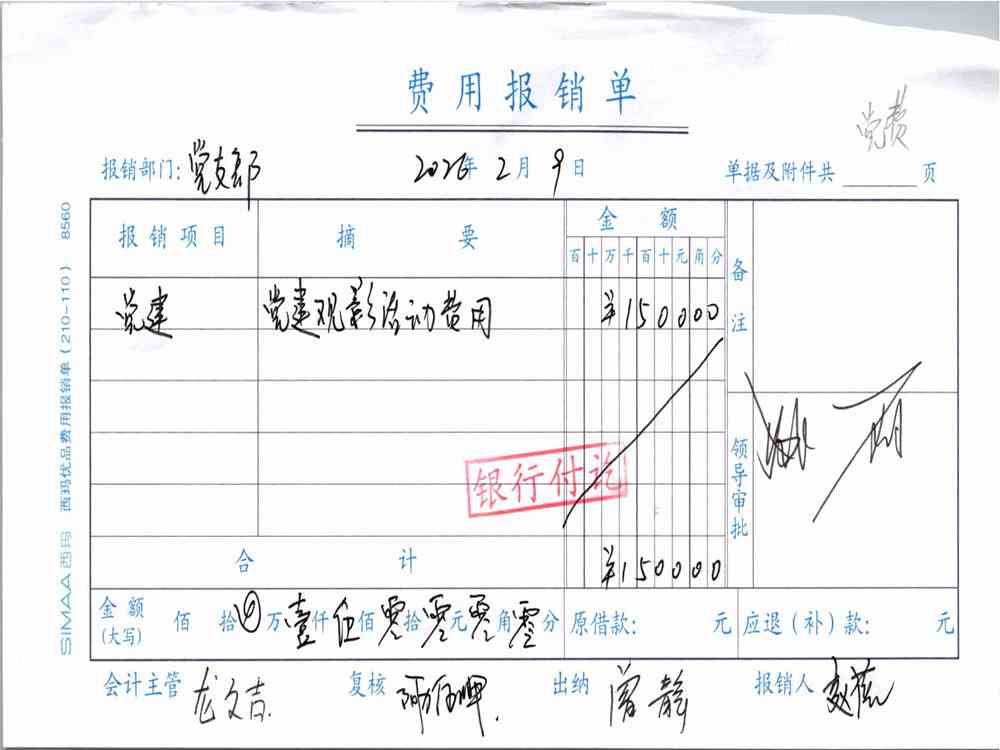 费用报销单
党费
报销部门:党支部 2026年2月9日 单据及附件共 页
报销项目 摘要 金额 备注
百十万千百十元角分
党建 党建观影活动费用 ¥150000
银行付讫
领导审批
合计 ¥150000
金额(大写) 佰 拾 万壹仟伍佰零拾零元零角零分 原借款: 元 应退(补)款: 元
会计主管 龙文吉 复核 出纳 曾静 报销人
SIMAA 西玛 西玛优品费用报销单(210-110) 8560